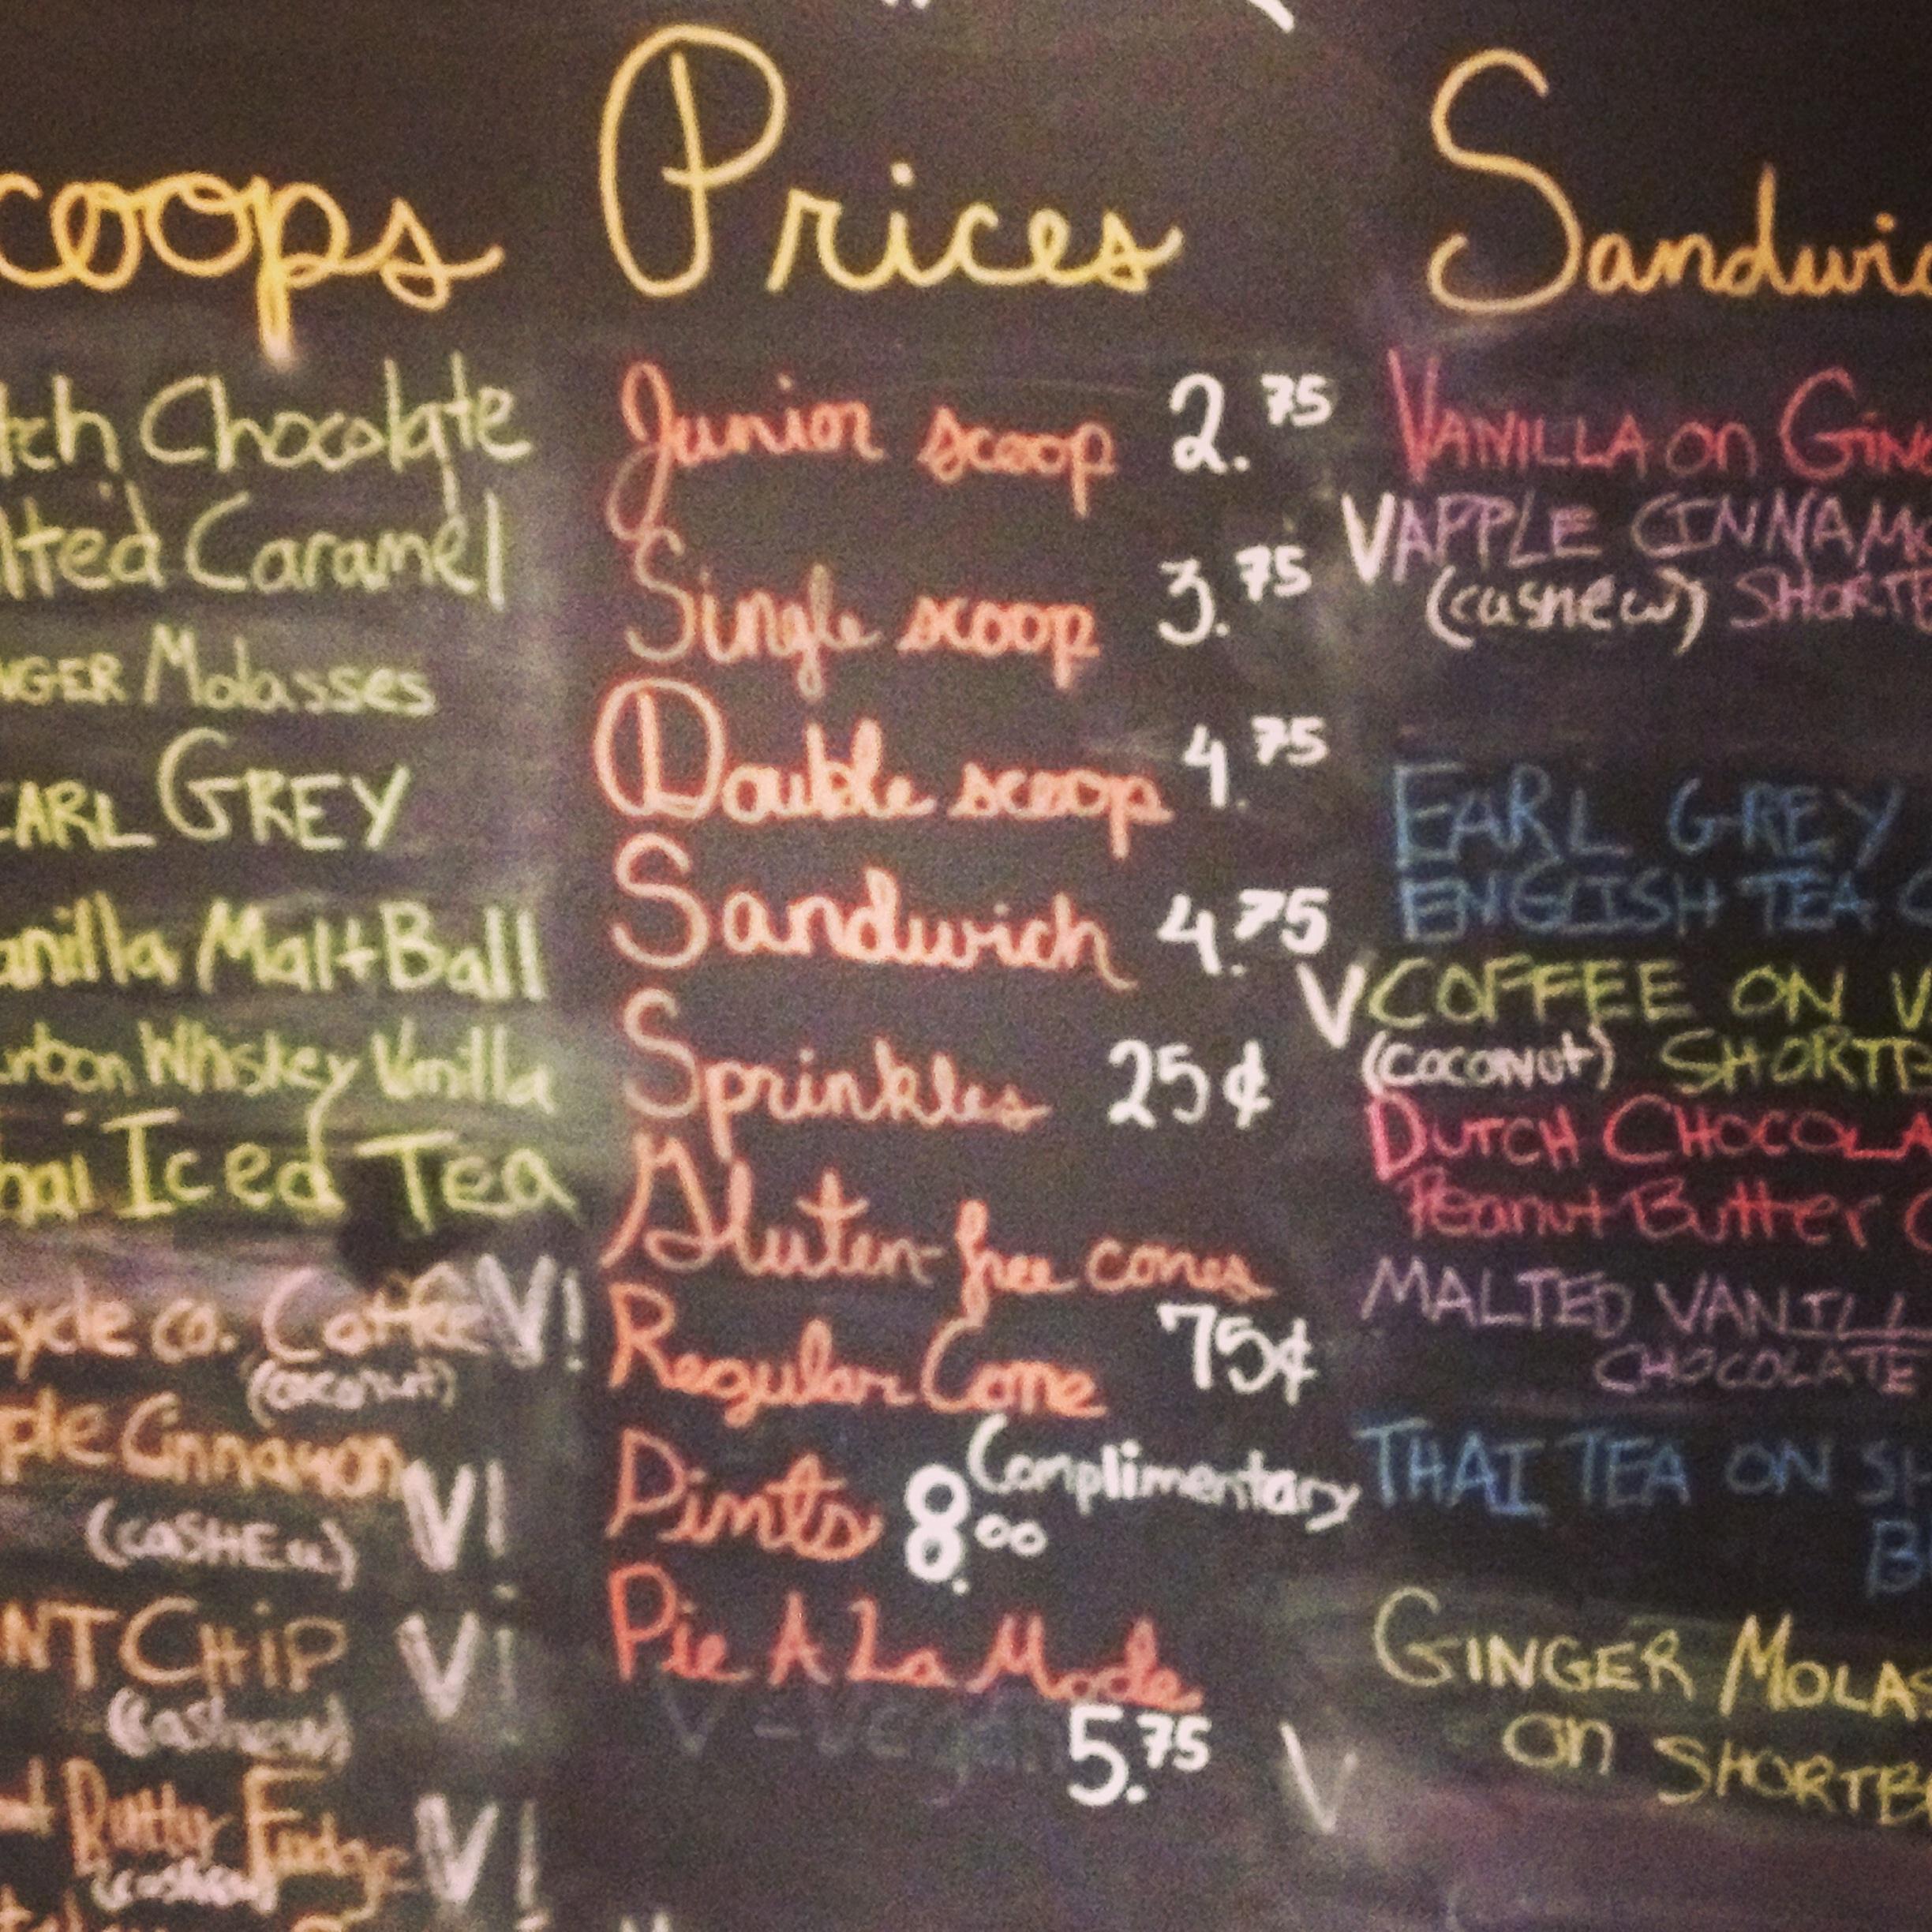 coops
tch Chocolate
lted Caramel
NGER Molasses
EARL GREY
anilla Malt Ball
urbon Whiskey Vanilla
hai Iced Tea
cycle co. Coffee V!
(coconut)
ple Cinnamon
(CASHEW) V!
NT CHIP V!
(cashew)
Butter Fudge V!
(cashew)
Prices
Junior scoop 2.75
Single scoop 3.75
Double scoop 4.75
Sandwich 4.75
Sprinkles 25¢
Gluten-free cones
75¢
Regular Cone
Complimentary
Pints 8.00
Pie A La Mode
V-Vegan 5.75
Sandwic
VANILLA on GING
V APPLE CINNAMO
(cashew) SHORTB
EARL GREY
ENGLISH TEA C
V COFFEE ON V
(coconut) SHORTB
DUTCH CHOCOLA
Peanut Butter C
MALTED VANILL
CHOCOLATE
THAI TEA ON SH
B
GINGER MOLAS
V on SHORTB